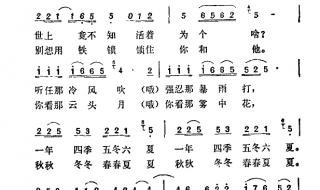 2 2 1 1 6 5 5 0 2 2 1 5 6 5 6 2 5 -
世上 竟不知 活着 为个 啥?
别想用 铁锁 锁住 你和 他。
i i i i 6 6 5 4 · 2 i i i i 6 6 5 5 2 5 -
听任那 冷风 吹 (哦) 强忍那 暴雨 打,
你看那 云头 月 (哦) 你看那 雾中 花,
2 2 5 5 2 5 3 2 2 2 1 5 2 2 5 5 2 5 3 2 2 2 1 5
一年 四季 五冬六 夏 一年 四季 五冬六 夏。
秋秋 冬冬 春春夏 夏 秋秋 冬冬 春春夏 夏。